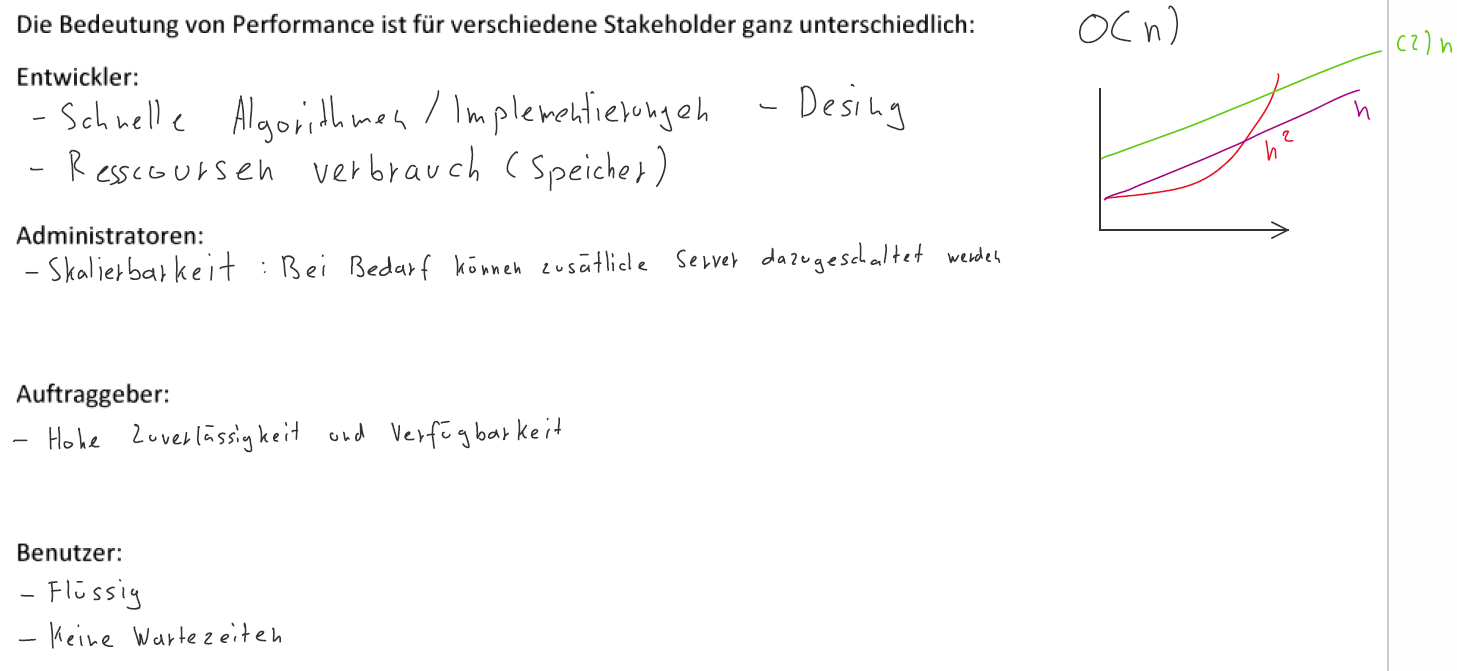 Die Bedeutung von Performance ist für verschiedene Stakeholder ganz unterschiedlich:
O(n)
(2)n
n
n²
Entwickler:
- Schnelle Algorithmen / Implementierungen - Desing
- Resscoursen verbrauch (Speicher)
Administratoren:
- Skalierbarkeit : Bei Bedarf können zusätlicle Server dazugeschaltet werden
Auftraggeber:
- Hohe Zuverlässigkeit und Verfügbarkeit
Benutzer:
- Flüssig
- Keine Wartezeiten